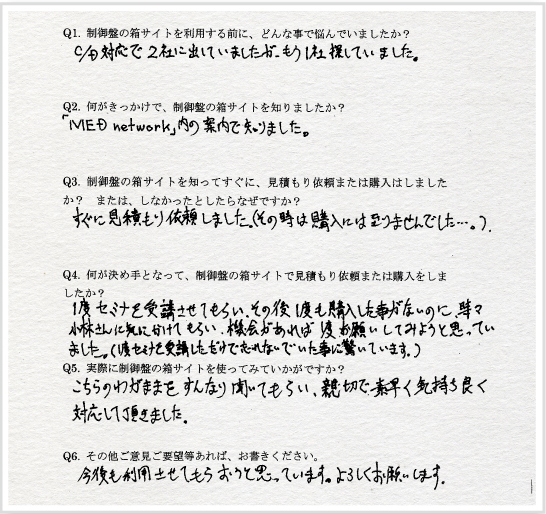 Q1. 制御盤の箱サイトを利用する前に、どんな事で悩んでいましたか？
C/D対応で2社に出していましたが、もう1社探していました。
Q2. 何がきっかけで、制御盤の箱サイトを知りましたか？
「MED network」内の案内で知りました。
Q3. 制御盤の箱サイトを知ってすぐに、見積もり依頼または購入はしました
か？ または、しなかったとしたらなぜですか？
すぐに見積もり依頼しました。(その時は購入には至りませんでした…。)
Q4. 何が決め手となって、制御盤の箱サイトで見積もり依頼または購入をしま
したか？
1度セミナを受講させてもらい、その後1度も購入した事がないのに、時々
小林さんに気に掛けてもらい、機会があれば1度お願いしてみようと思ってい
ました。(1度セミナを受講しただけで忘れないでいた事に驚いています。)
Q5. 実際に制御盤の箱サイトを使ってみていかがですか？
こちらのわがままをすんなり聞いてもらい、親切で素早く気持ち良く
対応して頂きました。
Q6. その他ご意見ご要望等あれば、お書きください。
今後も利用させてもらおうと思っています。よろしくお願いします。